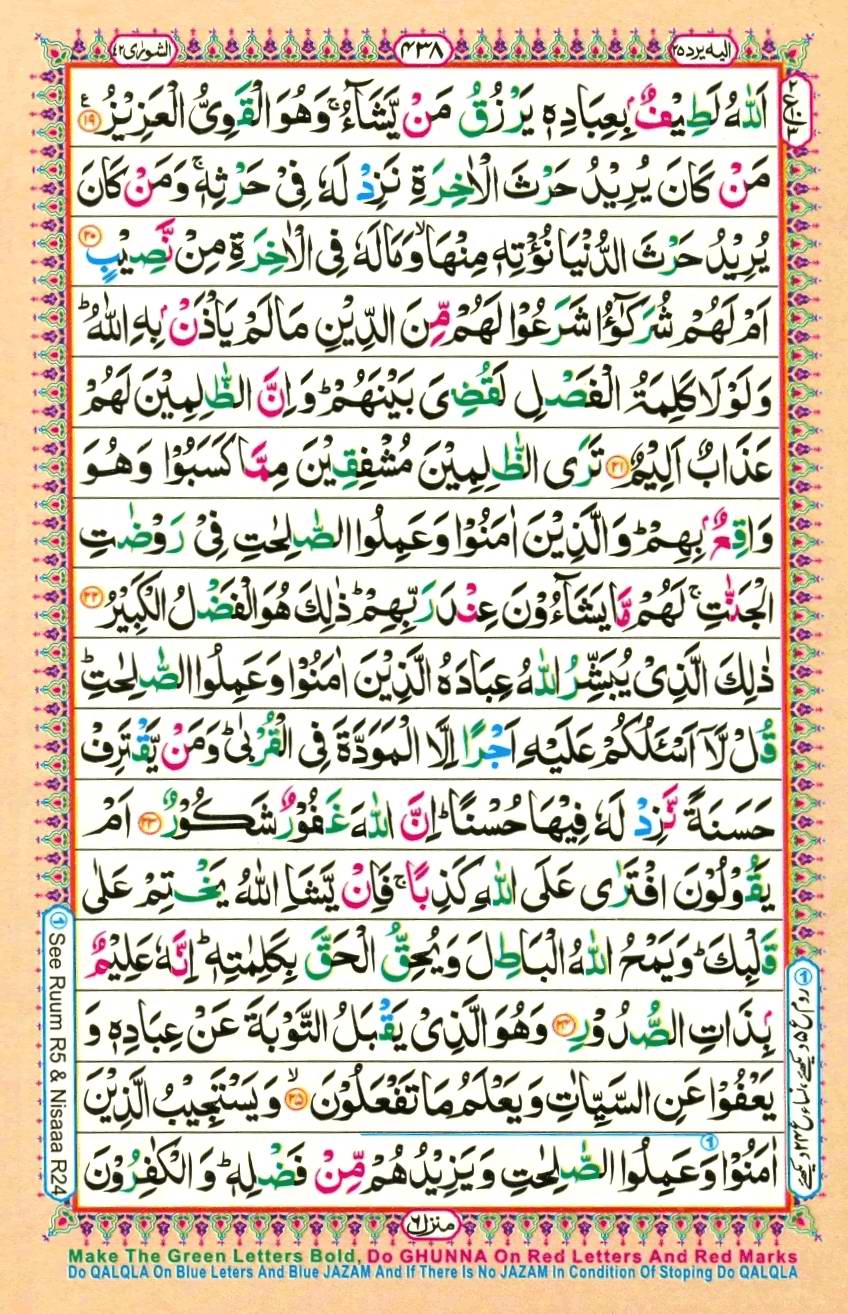 الشورٰى ٤٢
٤٣٨
اليه يرد ٢٥
اَللّٰهُ لَطِيْفٌۢ بِعِبَادِهٖ يَرْزُقُ مَنْ يَّشَآءُ ۚ وَهُوَ الْقَوِىُّ الْعَزِيْزُ ؏ ١٩
مَنْ كَانَ يُرِيْدُ حَرْثَ الْاٰخِرَةِ نَزِدْ لَهٗ فِىْ حَرْثِهٖ ۚ وَمَنْ كَانَ
يُرِيْدُ حَرْثَ الدُّنْيَا نُؤْتِهٖ مِنْهَا ۙ وَمَا لَهٗ فِى الْاٰخِرَةِ مِنْ نَّصِيْبٍ ٢٠
اَمْ لَهُمْ شُرَكٰٓؤُا شَرَعُوْا لَهُمْ مِّنَ الدِّيْنِ مَا لَمْ يَاْذَنْۢ بِهِ اللّٰهُ ؕ
وَلَوْلَا كَلِمَةُ الْفَصْلِ لَقُضِىَ بَيْنَهُمْ ؕ وَاِنَّ الظّٰلِمِيْنَ لَهُمْ
عَذَابٌ اَلِيْمٌ ٢١ تَرَى الظّٰلِمِيْنَ مُشْفِقِيْنَ مِمَّا كَسَبُوْا وَهُوَ
وَاقِعٌۢ بِهِمْ ؕ وَالَّذِيْنَ اٰمَنُوْا وَعَمِلُوا الصّٰلِحٰتِ فِىْ رَوْضٰتِ
الْجَنّٰتِ ۚ لَهُمْ مَّا يَشَآءُوْنَ عِنْدَ رَبِّهِمْ ؕ ذٰلِكَ هُوَ الْفَضْلُ الْكَبِيْرُ ٢٢
ذٰلِكَ الَّذِىْ يُبَشِّرُ اللّٰهُ عِبَادَهُ الَّذِيْنَ اٰمَنُوْا وَعَمِلُوا الصّٰلِحٰتِ ؕ
قُلْ لَّآ اَسْئَلُكُمْ عَلَيْهِ اَجْرًا اِلَّا الْمَوَدَّةَ فِى الْقُرْبٰى ؕ وَمَنْ يَّقْتَرِفْ
حَسَنَةً نَّزِدْ لَهٗ فِيْهَا حُسْنًا ؕ اِنَّ اللّٰهَ غَفُوْرٌ شَكُوْرٌ ٢٣ اَمْ
يَقُوْلُوْنَ افْتَرٰى عَلَى اللّٰهِ كَذِبًا ۚ فَاِنْ يَّشَاِ اللّٰهُ يَخْتِمْ عَلٰى
قَلْبِكَ ؕ وَيَمْحُ اللّٰهُ الْبَاطِلَ وَيُحِقُّ الْحَقَّ بِكَلِمٰتِهٖ ؕ اِنَّهٗ عَلِيْمٌۢ
بِذَاتِ الصُّدُوْرِ ٢٤ وَهُوَ الَّذِىْ يَقْبَلُ التَّوْبَةَ عَنْ عِبَادِهٖ وَ
يَعْفُوْا عَنِ السَّيِّاٰتِ وَيَعْلَمُ مَا تَفْعَلُوْنَ ۙ ٢٥ وَيَسْتَجِيْبُ الَّذِيْنَ
اٰمَنُوْا وَعَمِلُوا الصّٰلِحٰتِ وَيَزِيْدُهُمْ مِّنْ فَضْلِهٖ ؕ وَالْكٰفِرُوْنَ
① See Ruum R5 & Nisaaa R24
منزل ٦
Make The Green Letters Bold, Do GHUNNA On Red Letters And Red Marks
Do QALQLA On Blue Leters And Blue JAZAM And If There Is No JAZAM In Condition Of Stoping Do QALQLA